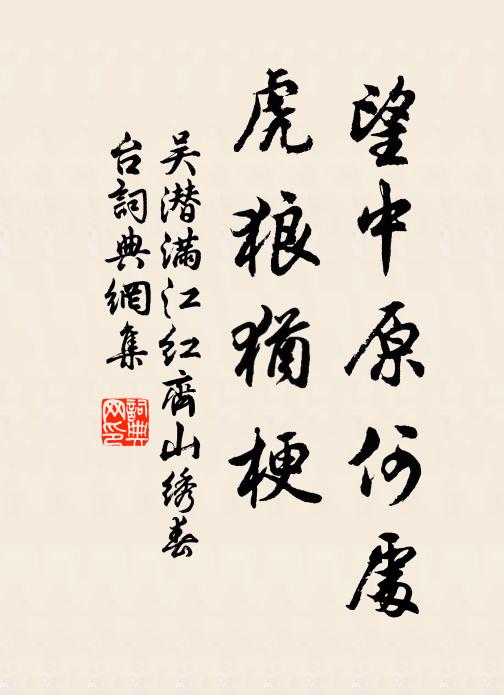 望中原何處
虎狼猶梗
吴潜满江红齊山绣春
台詞典網集
詞典
网印